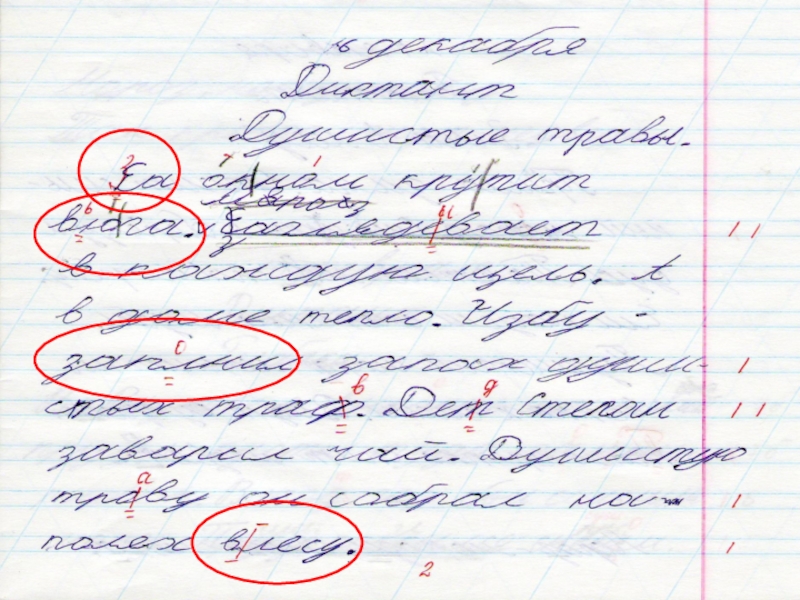 6 декабря
Диктант
Душистые травы.
За окном крутит
мороз
вюга. Загледевает
в каждую щель. А
в доме тепло. Избу
заплнил запах души-
стых траф. Дет Степан
заварил чай. Душистую
траву он собрал на
полях влесу.
2